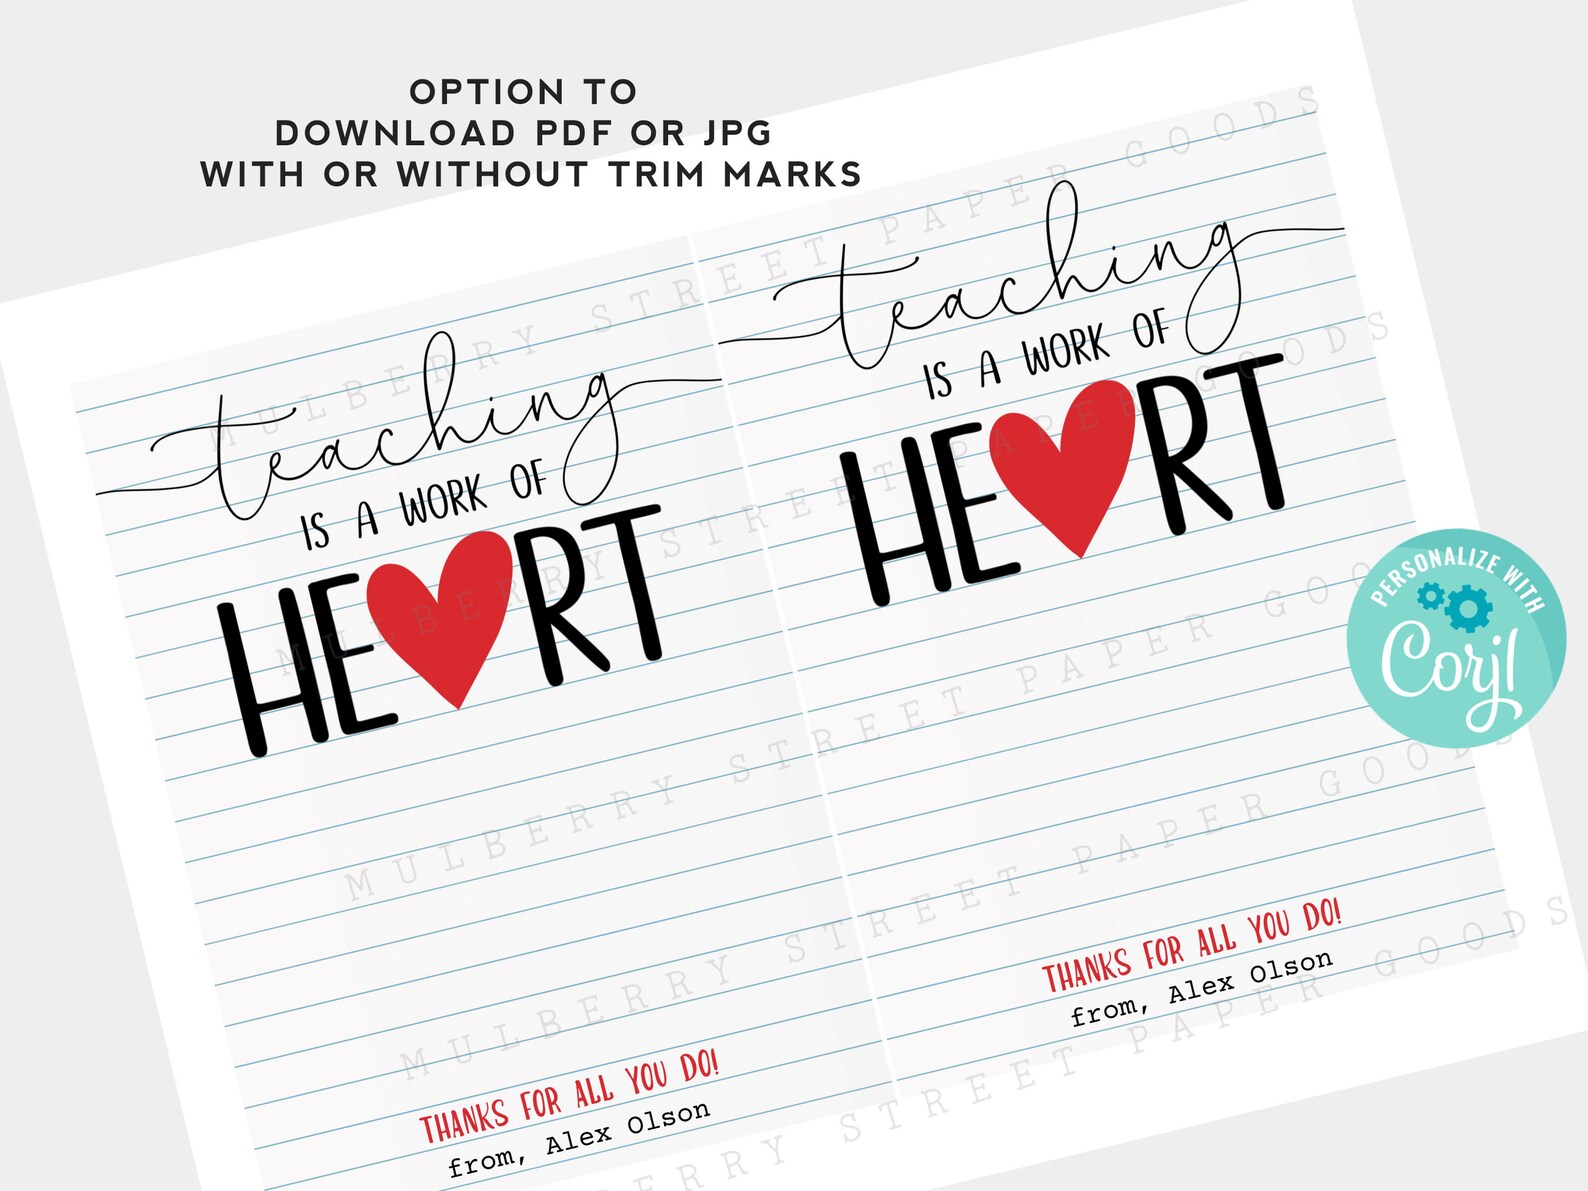 OPTION TO
DOWNLOAD PDF OR JPG
WITH OR WITHOUT TRIM MARKS
teaching
IS A WORK OF
HE RT
THANKS FOR ALL YOU DO!
from, Alex Olson
teaching
IS A WORK OF
HE RT
THANKS FOR ALL YOU DO!
from, Alex Olson
PERSONALIZE WITH
Corjl
MULBERRY STREET PAPER GOODS
MULBERRY STREET PAPER GOODS
MULBERRY STREET PAPER GOODS
MULBERRY STREET PAPER GOODS
MULBERRY STREET PAPER GOODS
BERRY STREET PAPER GOODS